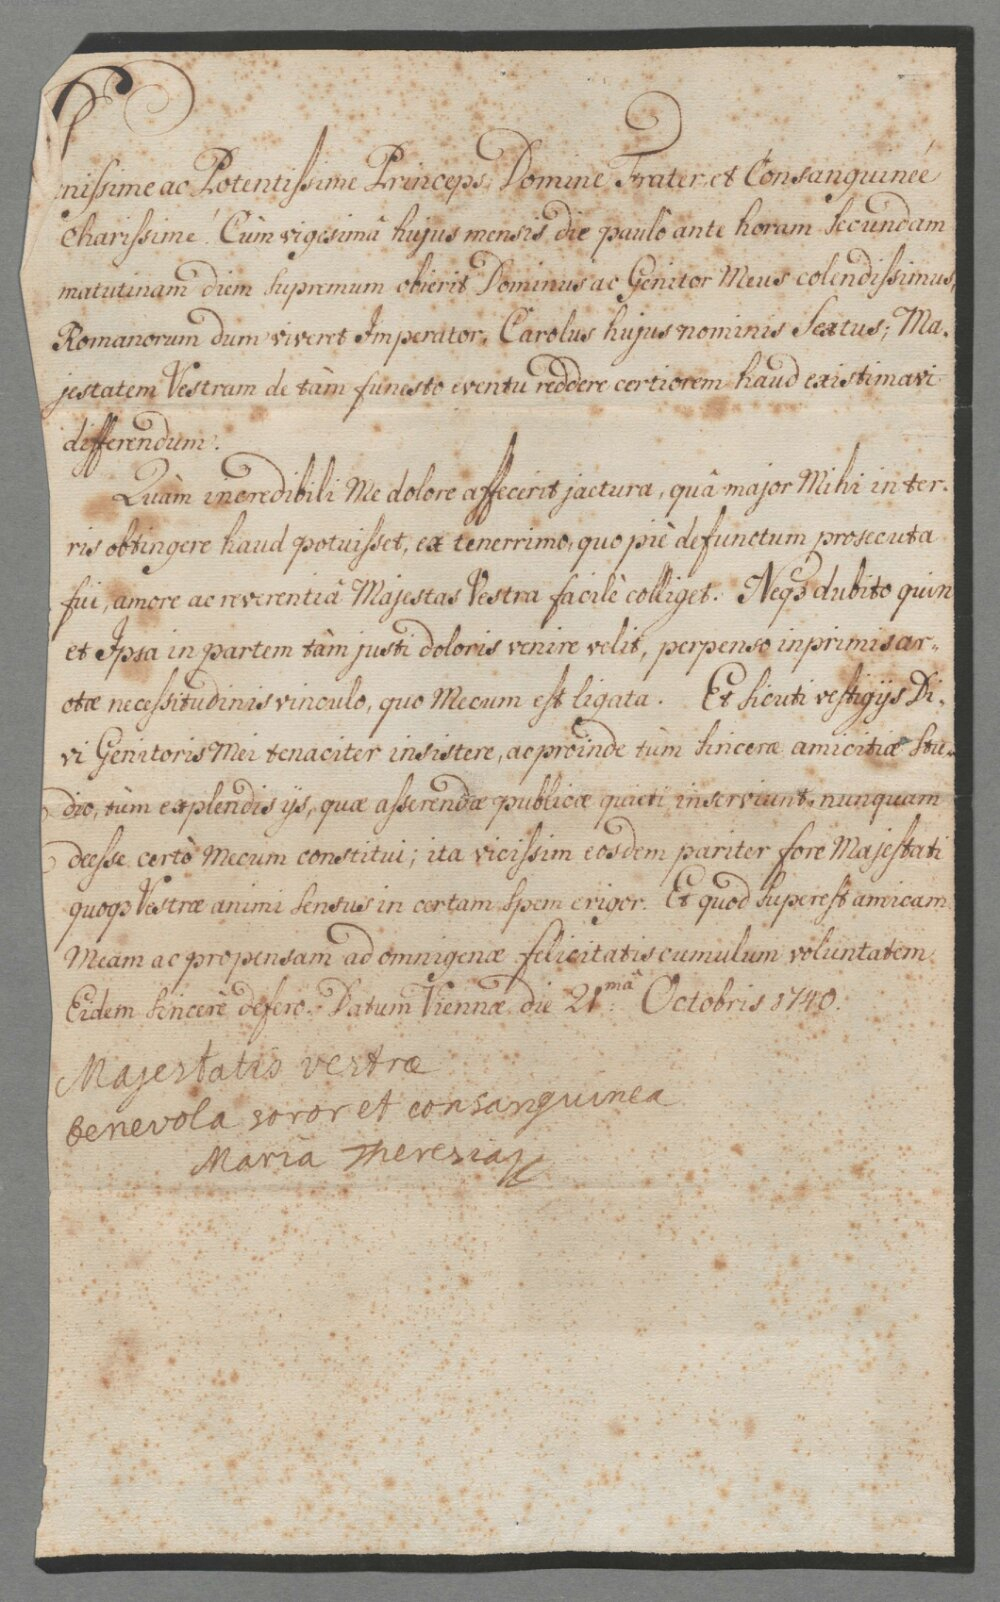 nissime ac Potentissime Princeps, Domine Frater et Consanguineé
Charissimé. Cùm vigesimâ hujus mensis die paulò ante horam secundam
matutinam diem supremum obierit Dominus ac Genitor Meus colendissimus,
Romanorum dum viveret Imperator, Carolus hujus nominis Sextus; Ma-
jestatem Vestram de tàm funesto eventu reddere certiorem haud existimavi
differendum.
Quàm incredibili Me dolore affecerit jactura, quâ major Mihi in ter-
ris obtingere haud potuisset, ex tenerrimo, quo piè defunctum prosecuta
fui, amore ac reverentiâ Majestas Vestra facilè colliget. Neqȝ dubito quin
et Ipsa in partem tàm justi doloris venire velit, perpenso inprimis ar-
ctæ necessitudinis vinculo, quo Mecum est ligata. Et sicuti vestigijs Di-
vi Genitoris Mei tenaciter insistere, ac proinde tùm sinceræ amicitiæ stu-
dio, tùm explendis ijs, quæ asserendæ publicæ quieti inserviunt, nunquam
deesse certò Mecum constitui; ita vicissim eosdem pariter fore Majestati
quoqȝ Vestræ animi sensus in certam spem erigor. Et quod superest amicam
Meam ac propensam ad omnigenæ felicitatis cumulum voluntatem
Eidem sincerè defero. Datum Viennæ die 21mâ Octobris 1740.
Majestatis vestræ
benevola soror et consanguinea
Maria Theresia